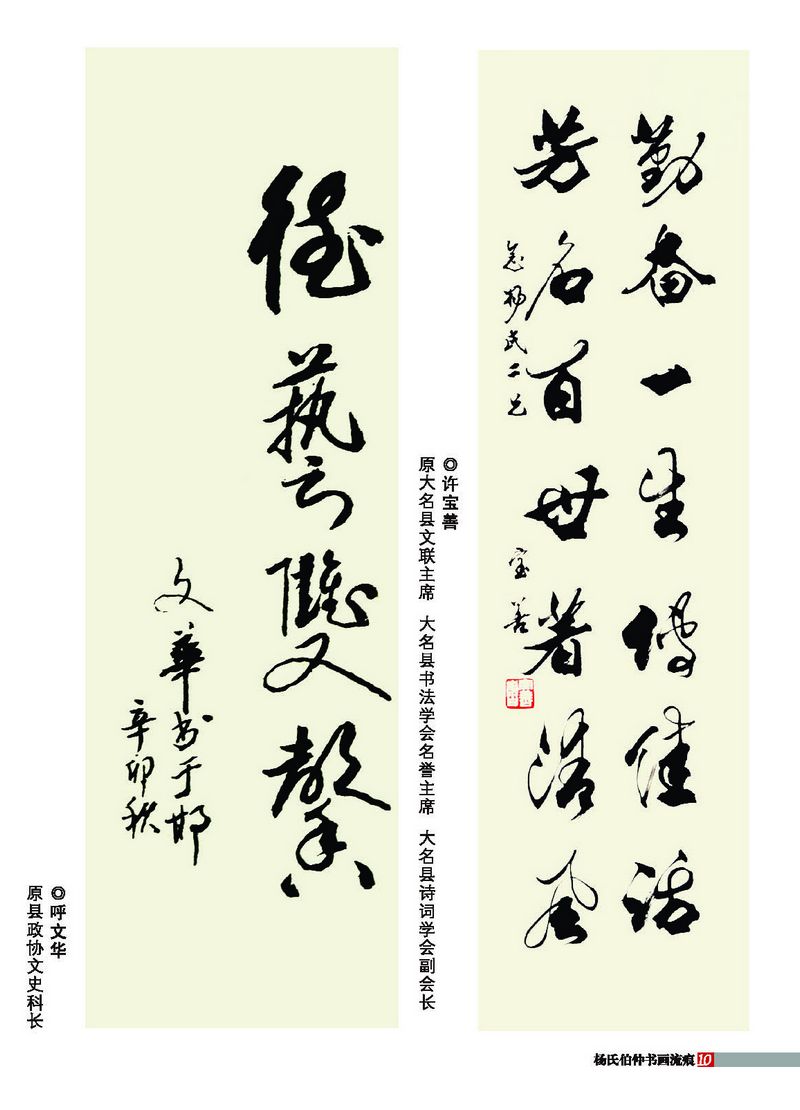 勤奋一生傳佳话
芳名百世著清风
杨氏二兄
宝善
◎许宝善
原大名县文联主席 大名县书法学会名誉主席 大名县诗词学会副会长
德藝雙馨
文華书于邯
辛卯秋
◎呼文华
原县政协文史科长
杨氏伯仲书画流痕 10